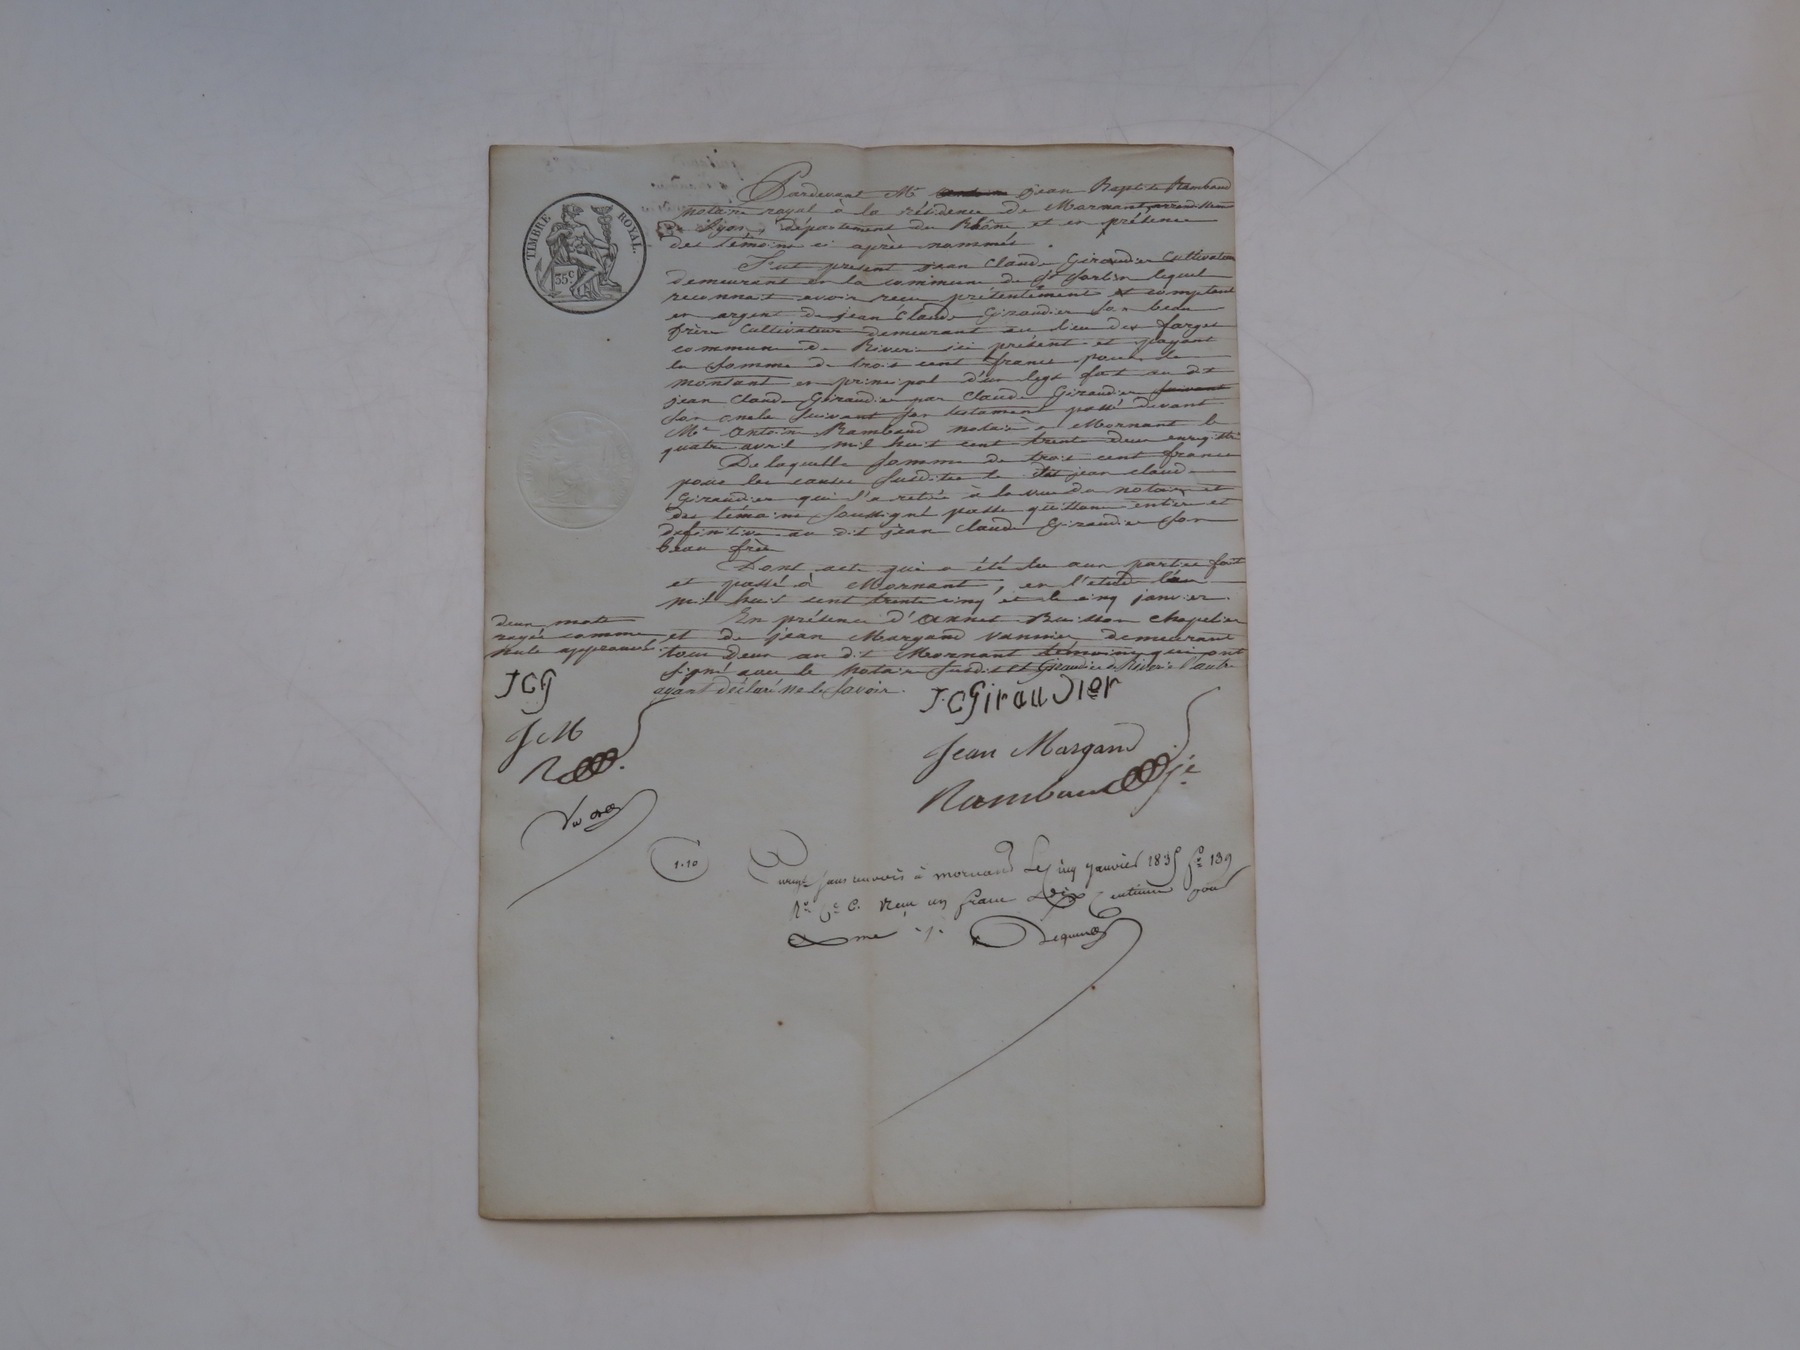 TIMBRE ROYAL.
35 c.
Pardevant Me Jean Baptiste Rambaud
notaire royal à la résidence de Mornant arrondissem
de Lyon, département du Rhône et en présence
des témoins ci après nommés.
Fut présent jean Claude Giraudier Cultivateur
demeurant en la commune de St Sorlin lequel
reconnait avoir reçu présentement et comptant
en argent de jean Claude Giraudier Son beau
frère Cultivateur demeurant au lieu des farges
commune de Riverie ici présent et payant
la Somme de trois cent francs pour le
montant en principal d'un legs fait au dit
jean Claude Giraudier par Claude Giraudier suivant
Son oncle Suivant Son testament passé devant
Me Antoine Rambaud notaire à Mornant le
quatre avril mil huit cent trente deux enregistré
De laquelle Somme de trois cent francs
pour les causes Susdites le dit jean claude
Giraudier qui l'a retiré à la vue du notaire et
des témoins Soussigné passe quittance entière et
définitive au dit jean Claude Giraudier Son
beau frère
Dont acte qui a été lu aux parties fait
et passé à Mornant, en l'etude l'an
mil huit cent trente cinq et le cinq janvier.
En présence d'Annet Buisson Chapelier
et de jean Margand vannier demeurant
tous deux au dit Mornant témoins qui ont
Signé avec le notaire Susdit et Giraudier de Riverie l'autre
ayant déclaré ne le Savoir.
deux mots
rayés comme
nuls approuvés.
JCG
JM
R
J.C Giraudier
Jean Margand
Rambaud je
1.10
Enregt Sans renvois à Mornand Le cinq janvier 1835 fo 139
Ro Ce 6. Reçu un franc dix Centimes pour
dme